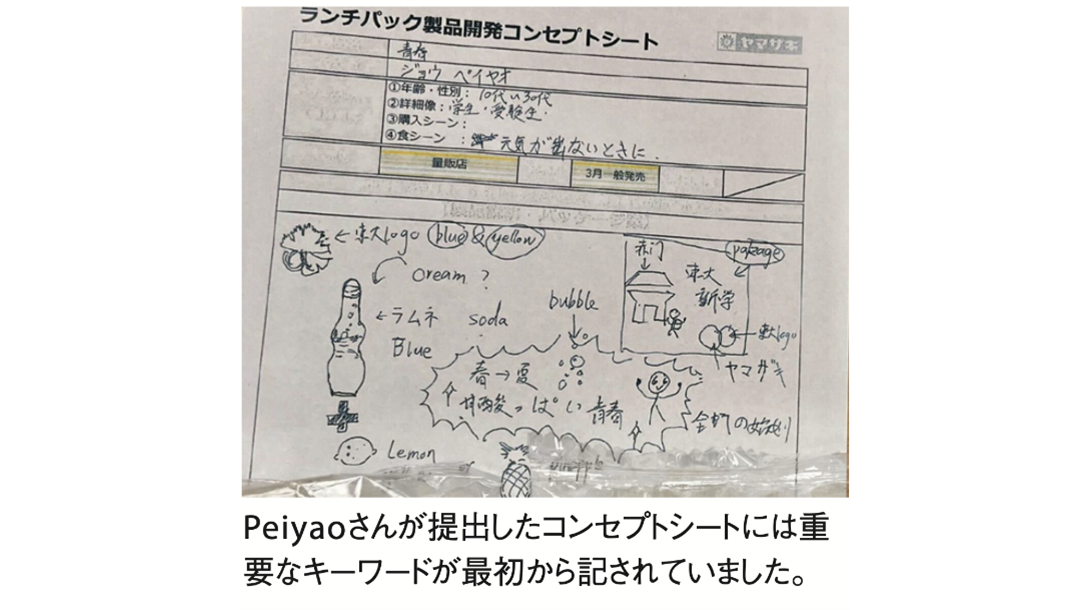 ランチパック製品開発コンセプトシート
ヤマザキ
青春
ジョウ ペイヤオ
①年齢・性別：10代～30代
②詳細像：学生・受験生
③購入シーン：
④食シーン ：元気が出ないときに.
量販店
3月一般発売
←東大logo blue & yellow
cream ?
←ラムネ soda
Blue
bubble
赤门
package
東大
新学
東大logo
ヤマザキ
春→夏
甘酸っぱい青春
Lemon
Peiyaoさんが提出したコンセプトシートには重
要なキーワードが最初から記されていました。